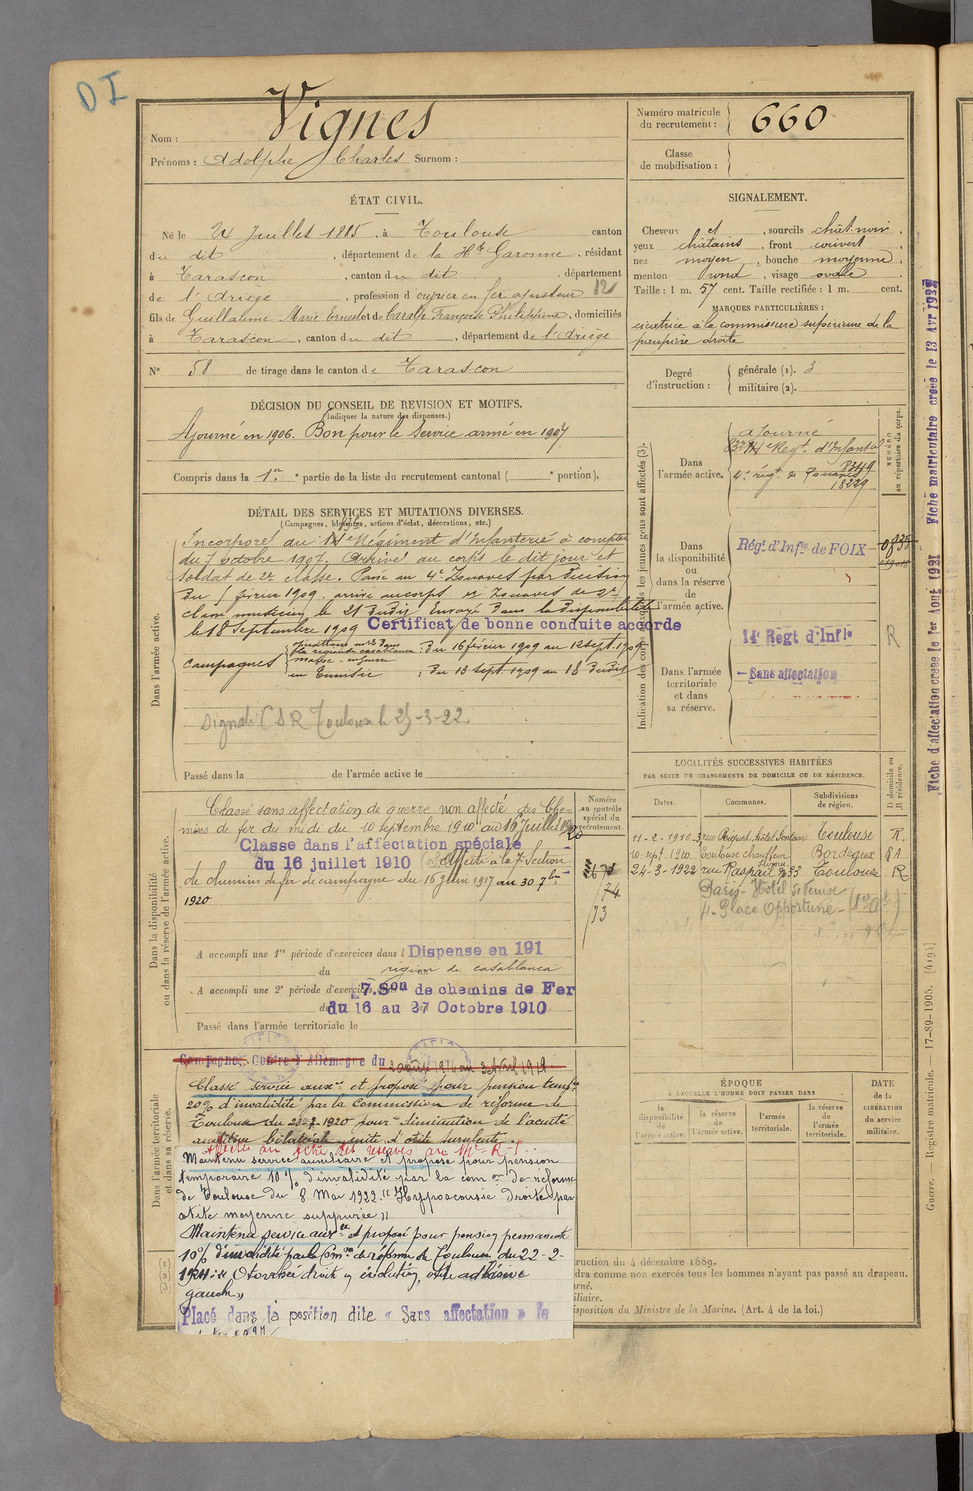 DI
Nom : Vignes
Prénoms : Adolphe Charles Surnom :
Numéro matricule du recrutement : 660
Classe de mobilisation :
ÉTAT CIVIL.
Né le 24 Juillet 1885, à Toulouse canton
du dit, département de la Hte Garonne, résidant
à Tarascon, canton du dit, département
de l'Ariège, profession d'ouvrier en fer ajusteur 12
fils de Guillaume Marie Ernest et de Françoise Philippine, domiciliés
à Tarascon, canton du dit, département de l'Ariège
N° 58 de tirage dans le canton de Tarascon
SIGNALEMENT.
Cheveux et, sourcils chât-noir,
yeux châtains, front couvert
nez moyen, bouche moyenne,
menton rond, visage ovale
Taille : 1 m. 57 cent. Taille rectifiée : 1 m. cent.
MARQUES PARTICULIÈRES :
cicatrice à la commissure supérieure de la
paupière droite
Degré d'instruction : générale (1). 3
militaire (2).
DÉCISION DU CONSEIL DE REVISION ET MOTIFS.
(Indiquer la nature des dispenses.)
Ajourné en 1906. Bon pour le Service armé en 1907
Compris dans la 1re partie de la liste du recrutement cantonal ( e portion).
DÉTAIL DES SERVICES ET MUTATIONS DIVERSES.
(Campagnes, blessures, actions d'éclat, décorations, etc.)
Dans l'armée active.
Incorporé au 14e Régiment d'Infanterie à compter
du 7 octobre 1907. Arrivé au corps le dit jour et
soldat de 2e classe. Passé au 4e Zouaves par décision
du février 1909. arrivé au corps et Zouaves de 2e
classe musicien le 21 dudit. Envoyé dans la disponibilité
le 18 Septembre 1909 Certificat de bonne conduite accordé
campagnes
Du 16 février 1909 au 12 sept. 1909
en Tunisie : du 13 sept. 1909 au 18 dudit
Signalé C D R Toulouse le 25-3-22
Passé dans la de l'armée active le
Indication des corps auxquels les jeunes gens sont affectés (3).
NUMÉRO au répertoire du corps.
Dans l'armée active.
ajourné
14e Régt. d'Infanterie
4e régt. de Zouaves
18229
Dans la disponibilité ou dans la réserve de l'armée active.
Régt d'Infie de FOIX
Dans l'armée territoriale et dans sa réserve.
14e Regt d'Infie
Sans affectation
R
Fiche d'affectation créée le 1er Août 1921 Fiche matriculaire créée le 13 Avr 192
LOCALITÉS SUCCESSIVES HABITÉES
PAR SUITE DE CHANGEMENTS DE DOMICILE OU DE RÉSIDENCE.
Dates. Communes. Subdivisions de région. D domicile ou R résidence.
11-2-1910 Toulouse R.
10 sept. 1910 Toulouse chauffeur Bordeaux
24-3-1922 rue Raspail 33 Toulouse R
Paris - Hôtel de Venise
4. Place Opportune
Dans la disponibilité ou dans la réserve de l'armée active.
Numéro au contrôle spécial du recrutement.
Classé sans affectation de guerre non affecté des Che-
mins de fer du midi du 10 septembre 1910 au 16 Juillet 1920
Classé dans l'affectation spéciale
du 16 juillet 1910 Affecté à la 7e Section
de chemins de fer de campagne du 16 Juin 1917 au 30 7bre
1920
74
73
A accompli une 1re période d'exercices dans l Dispensé en 191
du région de Casablanca
A accompli une 2e période d'exercices 7.Son de chemins de Fer
du 16 au 27 Octobre 1910
Passé dans l'armée territoriale le
Dans l'armée territoriale et dans sa réserve.
Campagnes Contre l'Allemagne du
Classé service auxre et proposé pour pension tempre
20% d'invalidité par la Commission de réforme de
Toulouse du 1920 pour "diminution de l'acuité
auditive bilatérale suite d'otite suralente"
Maintenu service auxiliaire et proposé pour pension
temporaire 10% d'invalidité par la com on de réforme
de Toulouse du 8 Mai 1922 "Hyppoacousie droite par
otite moyenne suppurée"
Maintenu service auxre et proposé pour pension permanente
10% d'invalidité par la Comon de réforme de Toulouse du 22-2-
1924 : "Otorrhée droite en évolution, otite adhésive
gauche"
Placé dans la position dite « Sans affectation » le
ÉPOQUE
À LAQUELLE L'HOMME DOIT PASSER DANS
la disponibilité de l'armée active. la réserve de l'armée active. l'armée territoriale. la réserve de l'armée territoriale.
DATE de la LIBÉRATION du service militaire.
ruction du 4 décembre 1889.
dra comme non exercés tous les hommes n'ayant pas passé au drapeau.
urné.
iliaire.
isposition du Ministre de la Marine. (Art. 4 de la loi.)
Guerre. — Registre matricule. — 17-89-1905. [4194]